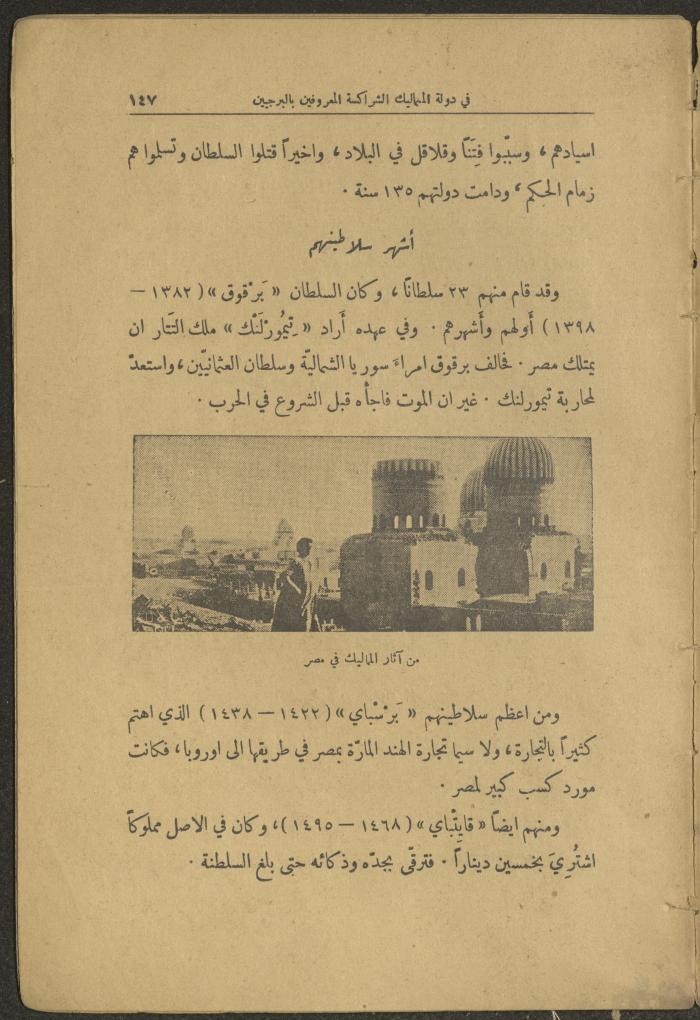 في دولة المماليك الشراكسة المعروفين بالبرجيين ١٤٧
اسيادهم ، وسبّبوا فِتَنًا وقلاقل في البلاد ، واخيراً قتلوا السلطان وتسلموا هم
زمام الحكم ، ودامت دولتهم ١٣٥ سنة ٠
أشهر سلاطينهم
وقد قام منهم ٢٣ سلطانًا ، وكان السلطان « بَرْقوق » ( ١٣٨٢ —
١٣٩٨ ) أَولهم وأَشهرهم ٠ وفي عهده أَراد « تِيمُورْلَنْك » ملك التَتَار ان
يمتلك مصر ٠ فحالف برقوق امراءَ سوريا الشماليّة وسلطان العثمانيّين ، واستعدّ
لمحاربة تيمورلنك ٠ غير ان الموت فاجأه قبل الشروع في الحرب ٠
من آثار المماليك في مصر
ومن اعظم سلاطينهم « بَرْسْباي » ( ١٤٢٢ — ١٤٣٨ ) الذي اهتم
كثيراً بالتجارة ، ولا سيما تجارة الهند المارّة بمصر في طريقها الى اوروبا ، فكانت
مورد كسب كبير لمصر ٠
ومنهم ايضاً « قايِتْباي » ( ١٤٦٨ — ١٤٩٥ ) ، وكان في الاصل مملوكاً
اشتُرِيَ بخمسين ديناراً ٠ فترقّى بجدّه وذكائه حتى بلغ السلطنة ٠